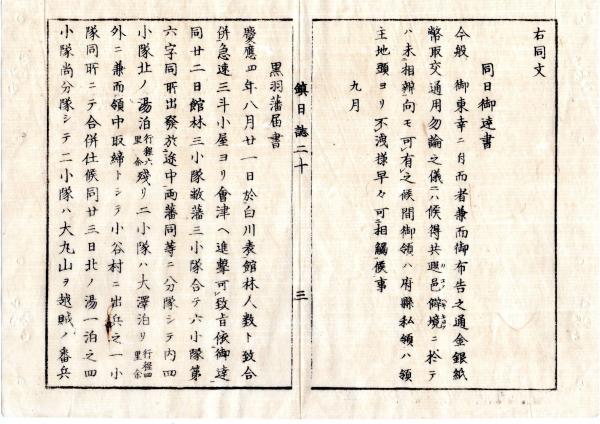 右同文
同日御達書
今般　御東幸ニ付而者兼而御布告之通金銀紙
幣取交通用勿論之儀ニハ候得共遐邑僻境ニ於テ
ハ未相辨向モ可有之候間御領ハ府縣私領ハ領
主地頭ヨリ不洩様早々可相觸候事
九月
鎮日誌二十
三
黒羽藩届書
慶應四年八月廿一日於白川表館林人数ト致合
併急速三斗小屋ヨリ會津ヘ進撃可致旨依御達
同廿二日館林三小隊敝藩三小隊合テ六小隊第
六字同所出發於途中両藩同等ニ分隊シテ内四
小隊北ノ湯泊行程六里余殘リ二小隊ハ大澤泊リ行程四里余
外ニ兼而領中取締トシテ小谷村ニ出兵之一小
隊同所ニテ合併仕候同廿三日北ノ湯一泊之四
小隊尚分隊シテ二小隊ハ大丸山ヲ越賊ノ番兵